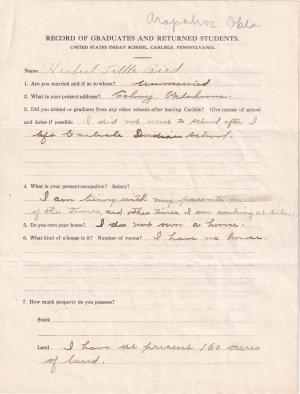 Arapahoe, Okla
RECORD OF GRADUATES AND RETURNED STUDENTS.
UNITED STATES INDIAN SCHOOL, CARLISLE, PENNSYLVANIA.
Name Herbert Little Bird
1. Are you married and if so to whom? Unmarried
2. What is your present address? Colony, Oklahoma.
3. Did you attend or graduate from any other schools after leaving Carlisle? Give names of school
and dates if possible I did not went to school after I
left Carlisle Indian School.
4. What is your present occupation? Salary?
I am living with my parents
of the times, and other times I am working at
5. Do you own your home? I do not own a home.
6. What kind of a house is it? Number of rooms? I have no house.
7. How much property do you possess?
Stock
Land I have at present 160 acres
of land.